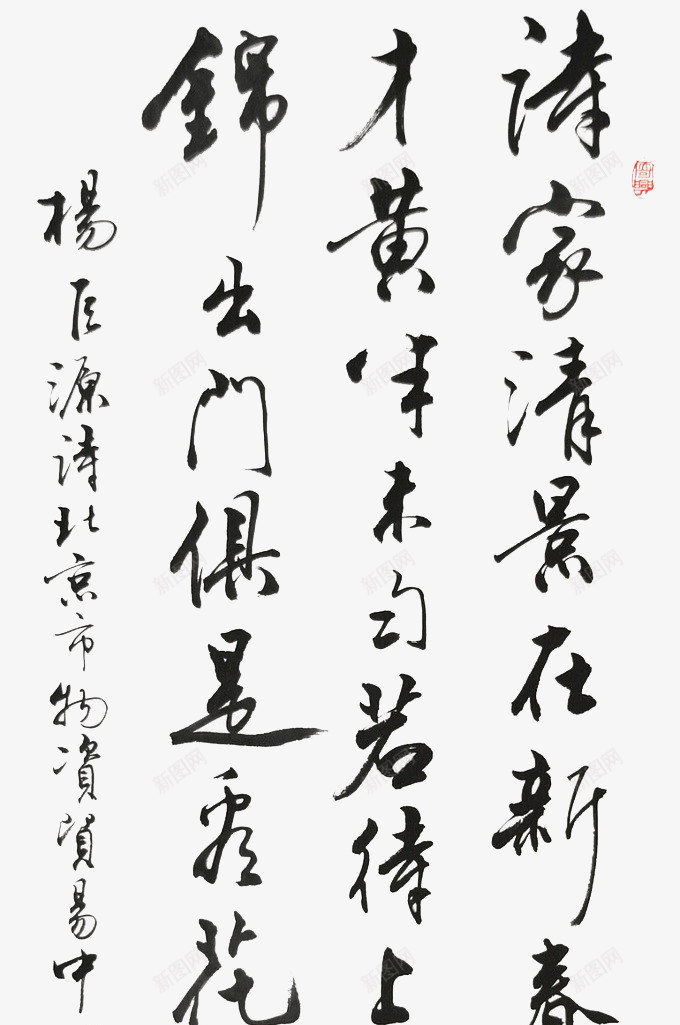 詩家清景在新春
才黄半未匀若待上
錦出門俱是看花
楊巨源詩北京市物資貿易中